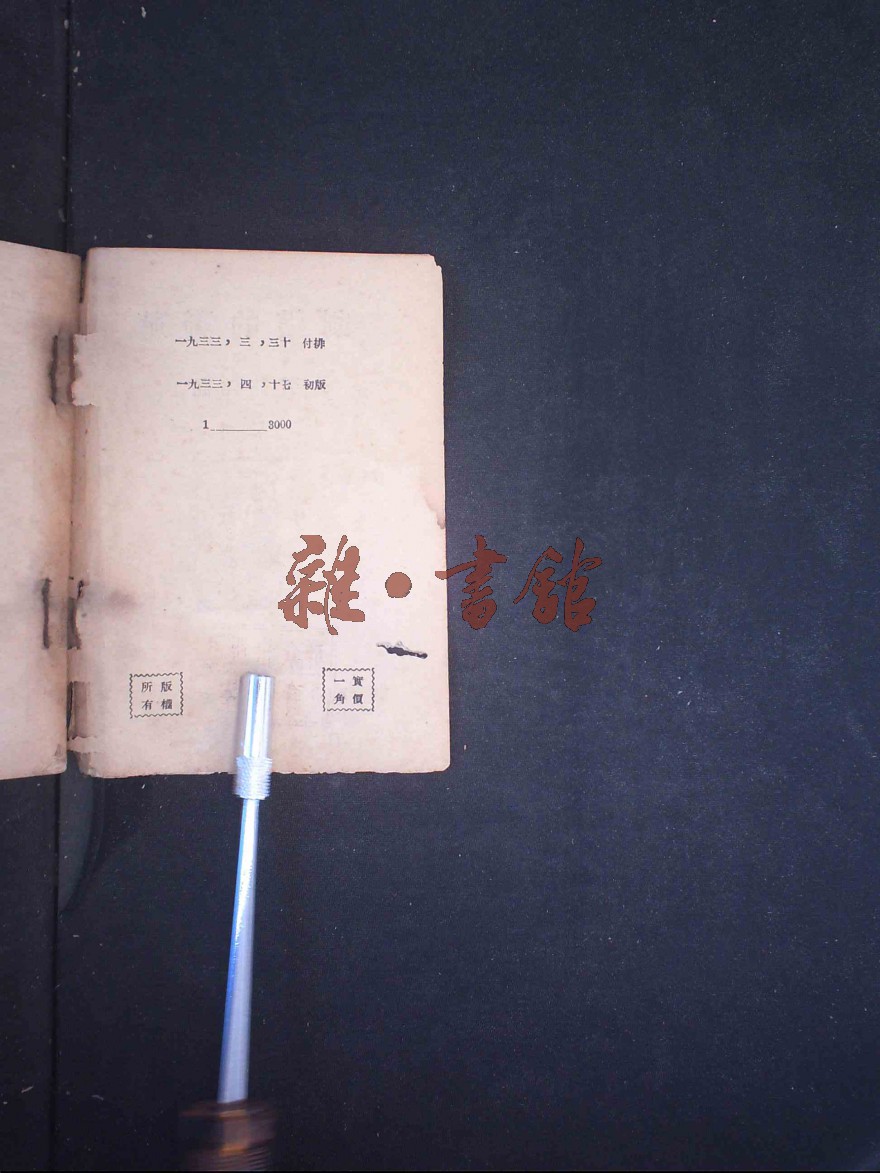 一九三三，三，三十 付排
一九三三，四，十七 初版
1________3000
雜·書館
版權
所有
實價
一角